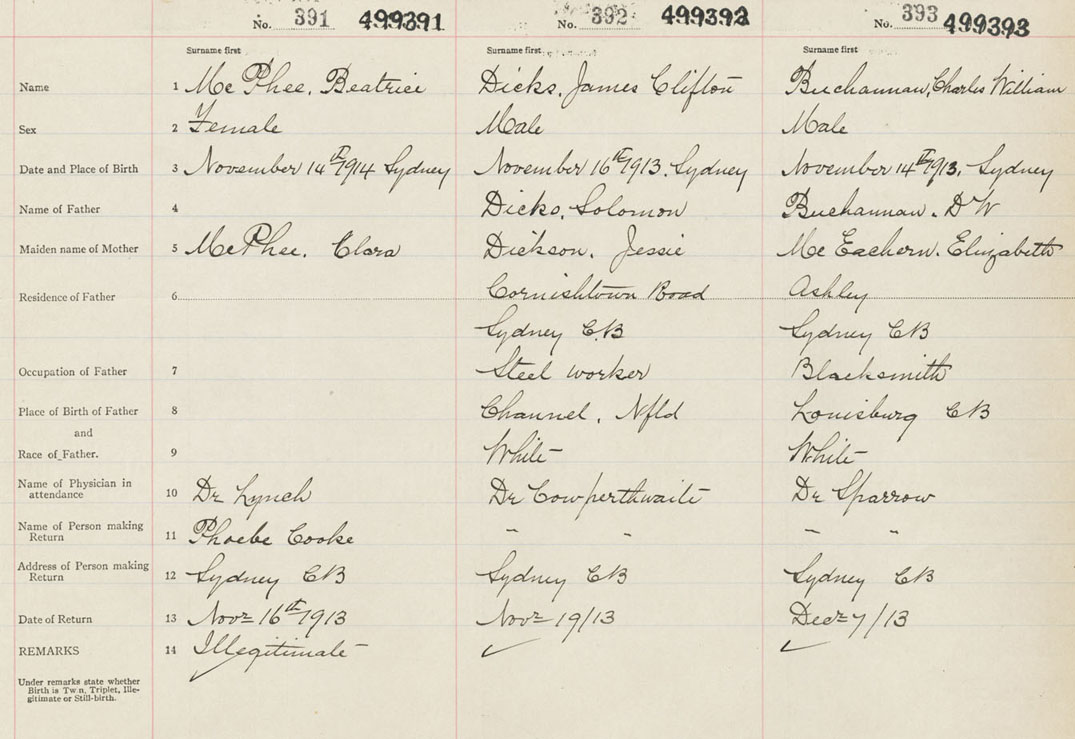 No. 391 499391 No. 392 499392 No. 393 499393
Surname first Surname first Surname first
Name 1 Mc Phee, Beatrice Dicks, James Clifton Buchannan, Charles William
Sex 2 Female Male Male
Date and Place of Birth 3 November 14th 1914 Sydney November 16th 1913. Sydney November 14th 1913. Sydney
Name of Father 4 Dicks, Solomon Buchannan. D W
Maiden name of Mother 5 McPhee. Clara Dickson. Jessie Mc Eachern. Elizabeth
Residence of Father 6 Cornishtown Road Ashley
Sydney C.B Sydney CB
Occupation of Father 7 Steel worker Blacksmith
Place of Birth of Father 8 Channel, Nfld Louisburg CB
and
Race of Father. 9 White White
Name of Physician in
attendance 10 Dr Lynch Dr Cowperthwaite Dr Sparrow
Name of Person making
Return 11 Phoebe Cooke " " " "
Address of Person making
Return 12 Sydney CB Sydney CB Sydney CB
Date of Return 13 Novr 16th 1913 Novr 19/13 Decr 7/13
REMARKS 14 Illegitimate
Under remarks state whether
Birth is Twin, Triplet, Ille-
gitimate or Still-birth.